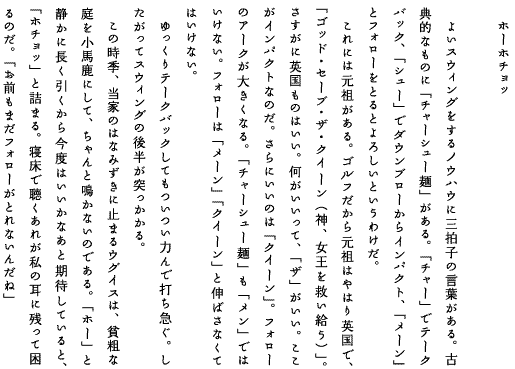 ホーホチョッ
よいスウィングをするノウハウに三拍子の言葉がある。古
典的なものに「チャーシュー麺」がある。「チャー」でテーク
バック、「シュー」でダウンブローからインパクト、「メーン」
とフォローをとるとよろしいというわけだ。
これには元祖がある。ゴルフだから元祖はやはり英国で、
「ゴッド・セーブ・ザ・クイーン(神、女王を救い給う)」。
さすがに英国ものはいい。何がいいって、「ザ」がいい。ここ
がインパクトなのだ。さらにいいのは「クイーン」。フォロー
のアークが大きくなる。「チャーシュー麺」も「メン」では
いけない。フォローは「メーン」「クイーン」と伸ばさなくて
はいけない。
ゆっくりテークバックしてもついつい力んで打ち急ぐ。し
たがってスウィングの後半が突っかかる。
この時季、当家のはなみずきに止まるウグイスは、貧粗な
庭を小馬鹿にして、ちゃんと鳴かないのである。「ホー」と
静かに長く引くから今度はいいかなあと期待していると、
「ホチョッ」と詰まる。寝床で聴くあれが私の耳に残って困
るのだ。「お前もまだフォローがとれないんだね」